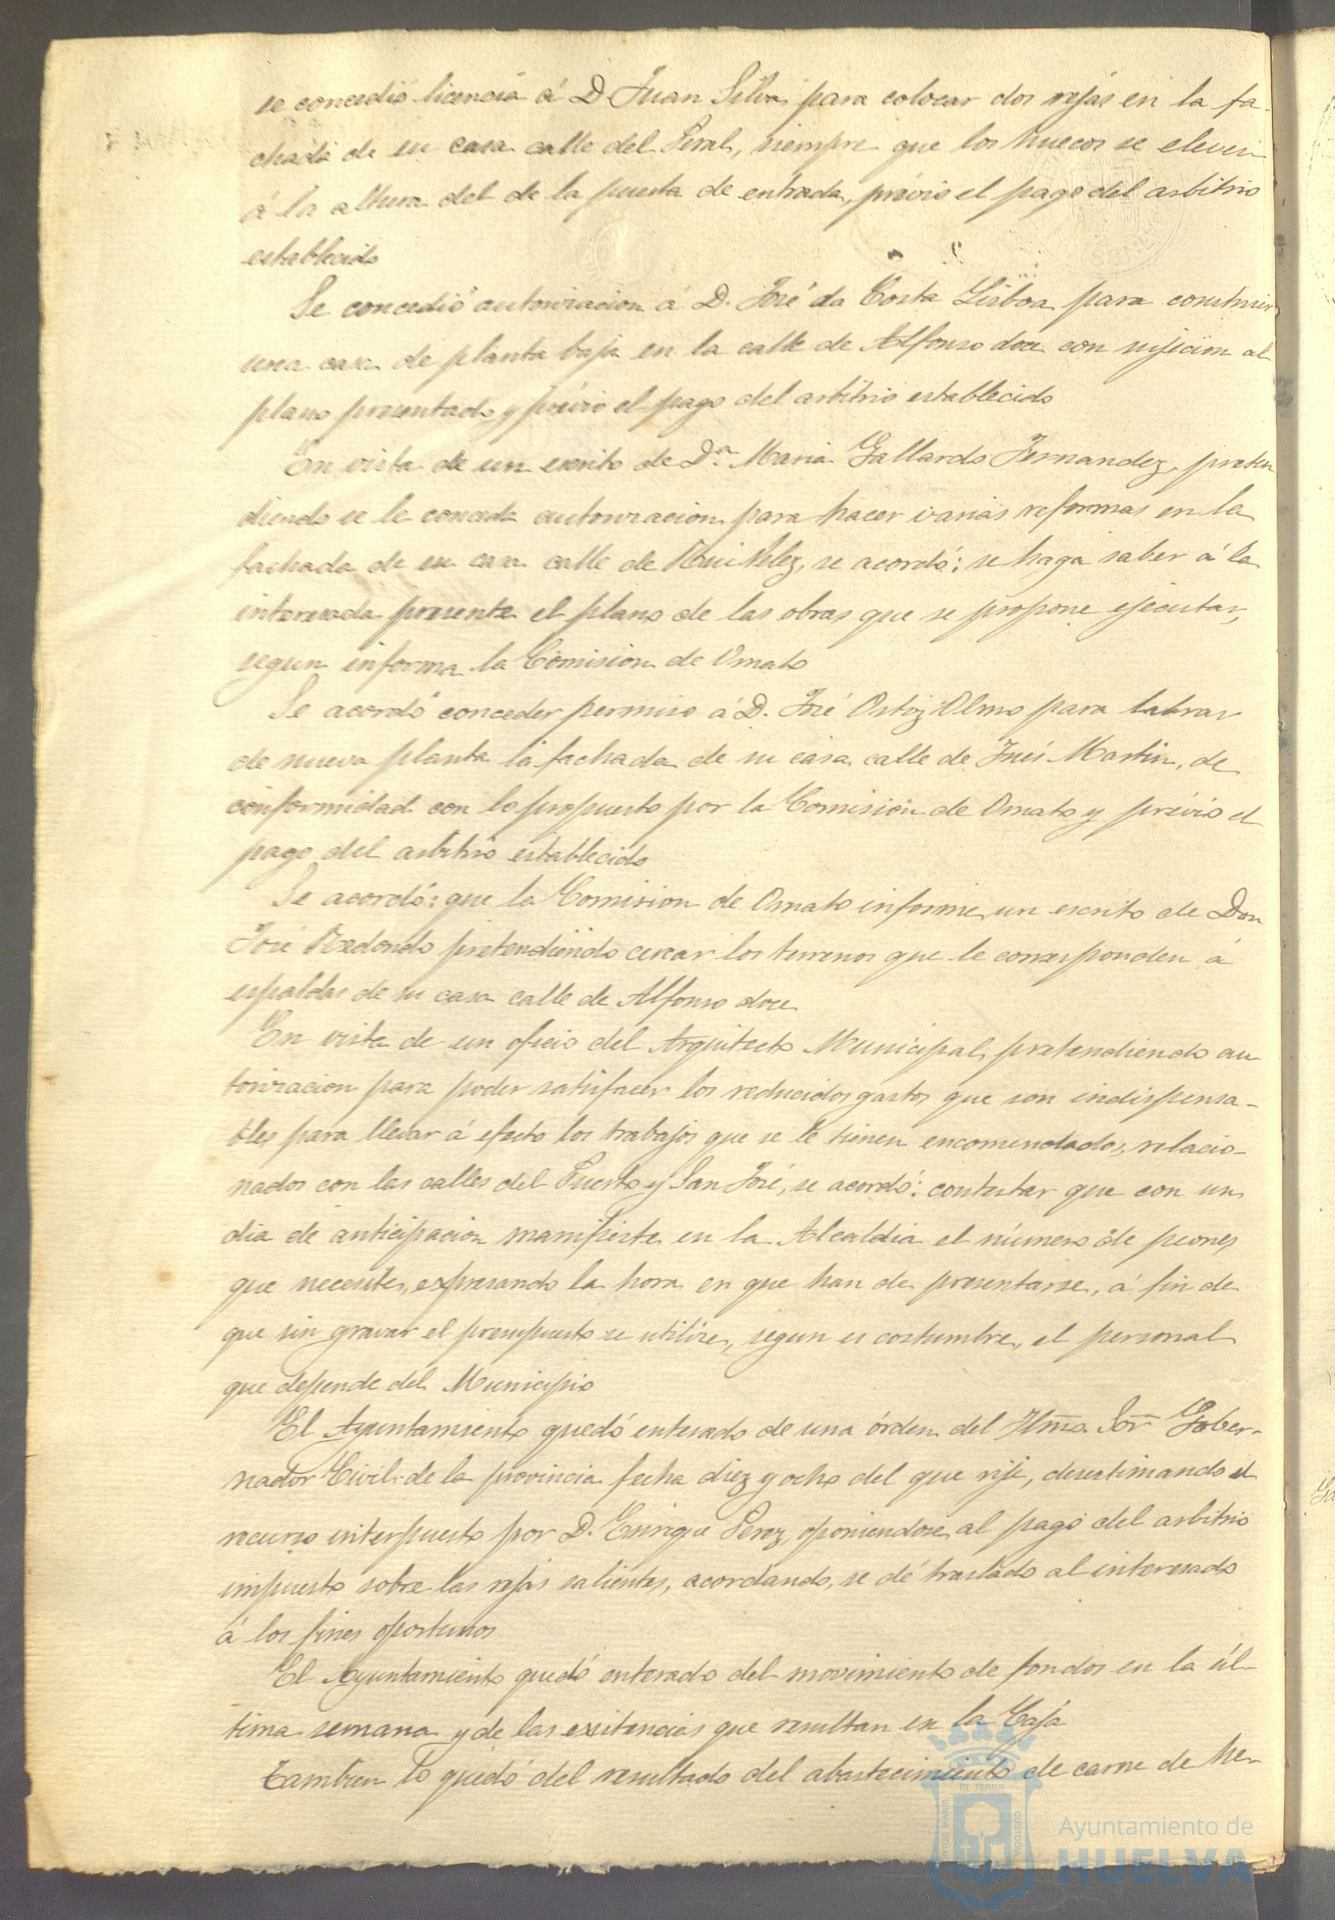 se concedió licencia á D. Juan Silva para colocar dos rejas en la fa-
chada de su casa calle del Peral, siempre que los huecos se eleven
á la altura del de la puerta de entrada, prévio el pago del arbitrio
establecido
Se concedió autorizacion á D. José da Costa Lisboa para construir
una casa de planta baja en la calle de Alfonso doce con sujecion al
plano presentado y prévio el pago del arbitrio establecido
En vista de un escrito de D.ª Maria Gallardo Fernandez, preten
diendo se le conceda autorizacion para hacer varias reformas en la
fachada de su casa calle de Rui Velez, se acordó: se haga saber á la
interesada presente el plano de las obras que se propone ejecutar,
segun informa la Comision de Ornato
Se acordó conceder permiso á D. José Ortiz Olmo para labrar
de nueva planta la fachada de su casa calle de Inés Martin, de
conformidad con lo propuesto por la Comision de Ornato y prévio el
pago del arbitrio establecido
Se acordó: que la Comision de Ornato informe un escrito de Don
José Redondo pretendiendo cercar los terrenos que le corresponden á
espaldas de su casa calle de Alfonso doce
En vista de un oficio del Arquitecto Municipal, pretendiendo au
torizacion para poder satisfacer los reducidos gastos que son indispensa-
bles para llevar á efecto los trabajos que se le tienen encomendados, relacio-
nados con las calles del Puerto y San José, se acordó: contestar que con un
dia de anticipacion manifieste en la Alcaldia el número de peones
que necesite, expresando la hora en que han de presentarse, á fin de
que sin gravar el presupuesto se utilize, segun es costumbre, el personal
que depende del Municipio
El Ayuntamiento quedó enterado de una órden del Iltmo. Sor Gober-
nador Civil de la provincia fecha diez y ocho del que rije, desestimando el
recurso interpuesto por D. Enrique Perez, oponiendose al pago del arbitrio
impuesto sobre las rejas salientes, acordando, se dé traslado al interesado
á los fines oportunos
El Ayuntamiento quedó enterado del movimiento de fondos en la úl-
tima semana y de las existencias que resultan en la Caja
Tambien lo quedó del resultado del abastecimiento de carne de he-
Ayuntamiento de
HUELVA